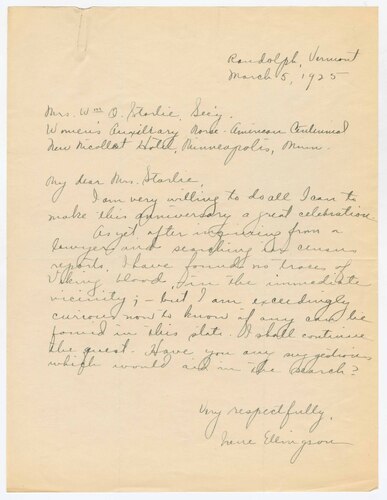 Randolph, Vermont
March 5, 1925
Mrs. Wm O. Storlie, Sec'y.
Women's Auxilliary Norse-American Centennial
New Nicollet Hotel, Minneapolis, Minn.
My dear Mrs. Storlie,
I am very willing to do all I can to
make this anniversary a great celebration.
As yet after inquiring from a
lawyer and searching in census
reports, I have found no traces of
Viking blood in the immediate
vicinity; - but I am exceedingly
curious now to know if any can be
found in this state. I shall continue
the quest. Have you any suggestions
which would aid in the search?
Very respectfully,
Irene Ellingson